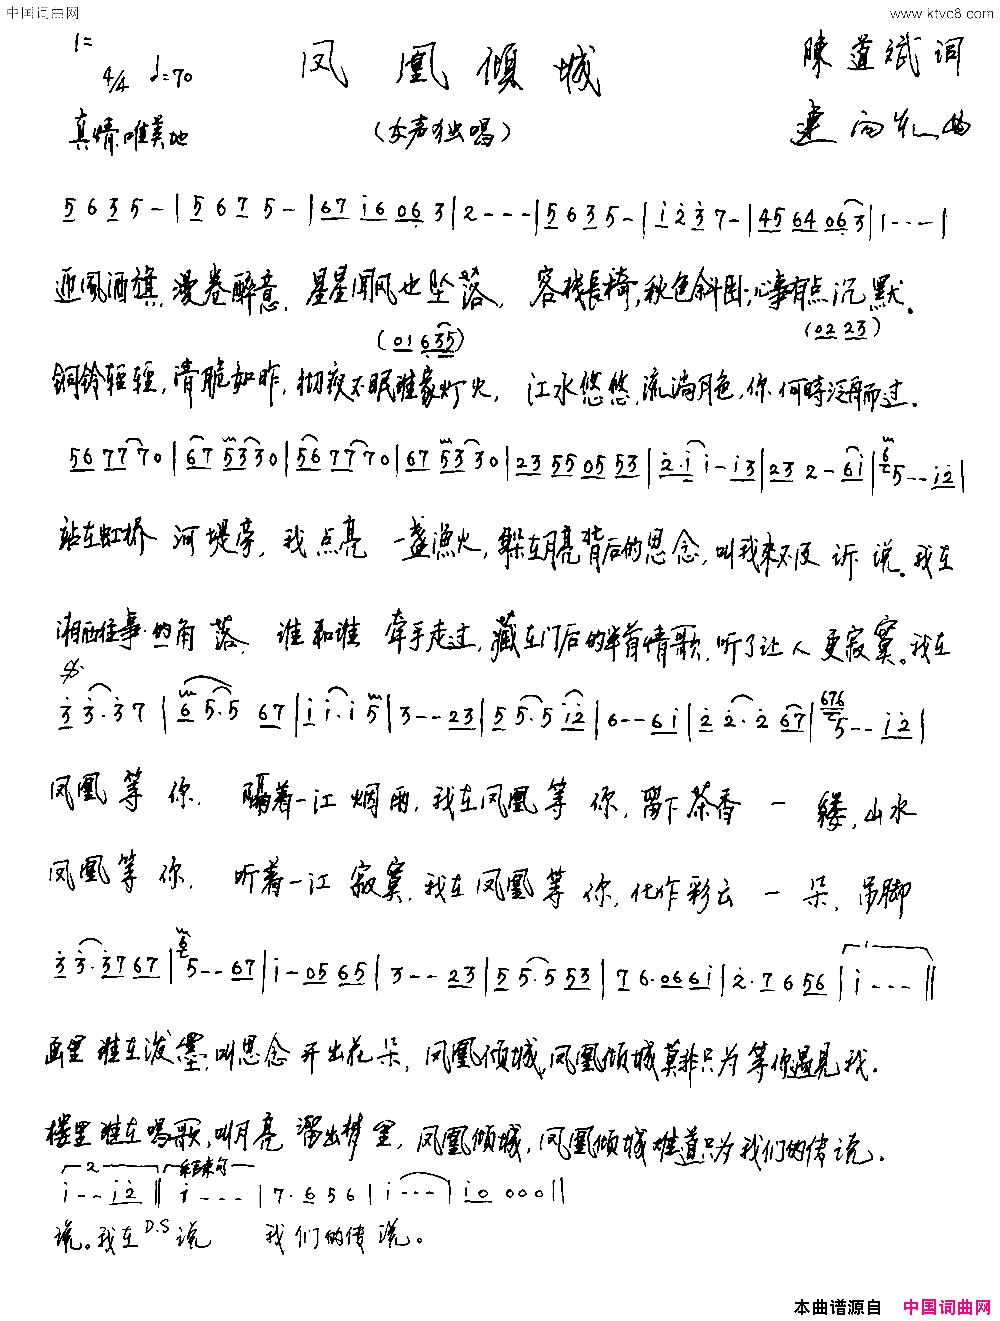 中国词曲网 www.ktvc8.com
1=
4/4 ♩=70 凤凰倾城 陳道斌 词
真情、唯美地 (女声独唱) 建 曲
5 6 3 5 - | 5 6 7 5 - | 67 i6 06 3 | 2 - - - | 5 6 3 5 - | i 2 3 7 - | 45 64 06 3 | 1 - - - |
迎风酒旗,漫卷醉意,星星闻风也坠落,客栈長椅,秋色斜卧,心事有点沉默。
(01 6 35) (02 23)
铜铃轻轻,清脆如昨,彻夜不眠谁家灯火,江水悠悠,流淌月色,你何時泛舟而过。
56 77 70 | 67 53 30 | 56 77 70 | 67 53 30 | 23 55 05 53 | 2·i i - i3 | 23 2 - 6i | 6 5 - - i2 |
站在虹桥 河堤旁,我点亮 一盏漁火,躲在月亮背后的思念,叫我来不及诉说。我在
湘西往事的角落,谁和谁 牵手走过,藏在门后的半首情歌,听了让人更寂寞。我在
3 3·3 7 | 6 5·5 67 | i i·i 5 | 3 - - 23 | 5 5·5 i2 | 6 - - 6i | 2 2·2 67 | 676 5 - - i2 |
凤凰等你,隔着一江烟雨,我在凤凰等你,留下茶香一缕,山水
凤凰等你,听着一江寂寞,我在凤凰等你,化作彩云一朵,吊脚
3 3·37 67 | 6 5 - - 67 | i - 05 65 | 3 - - 23 | 5 5·5 53 | 7 6·06 6i | 2·7 6 56 | 1 i - - - ‖
画里谁在泼墨,叫思念开出花朵,凤凰倾城,凤凰倾城莫非只为等你遇见我。
楼里谁在唱歌,叫月亮溜出梦里,凤凰倾城,凤凰倾城难道只为我们的传说。
2 结束句
i - - i2 ‖ i - - - | 7·6 5 6 | i - - - | i0 000 ‖
说。我在 D.S 说 我们的传说。
本曲谱源自 中国词曲网